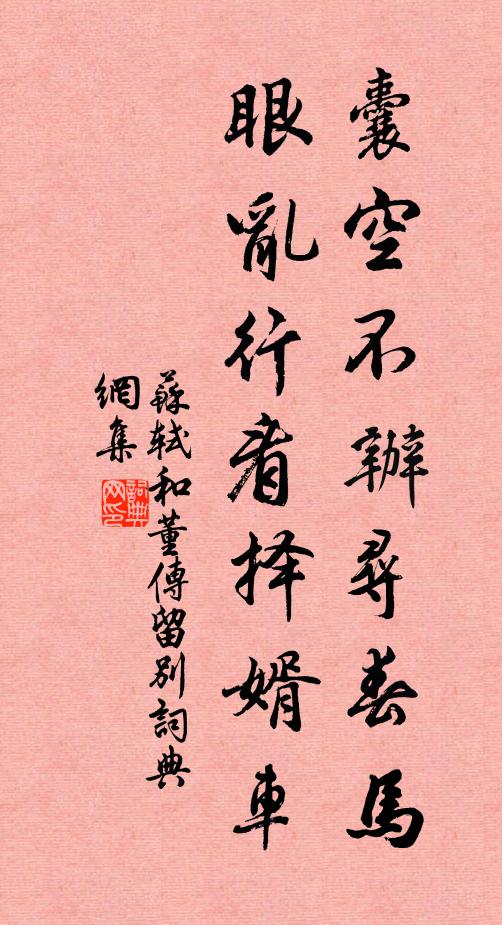 囊空不辦尋春馬
眼亂行看择婿車
蘇軾和董傳留別詞典
網集
詞典
网印